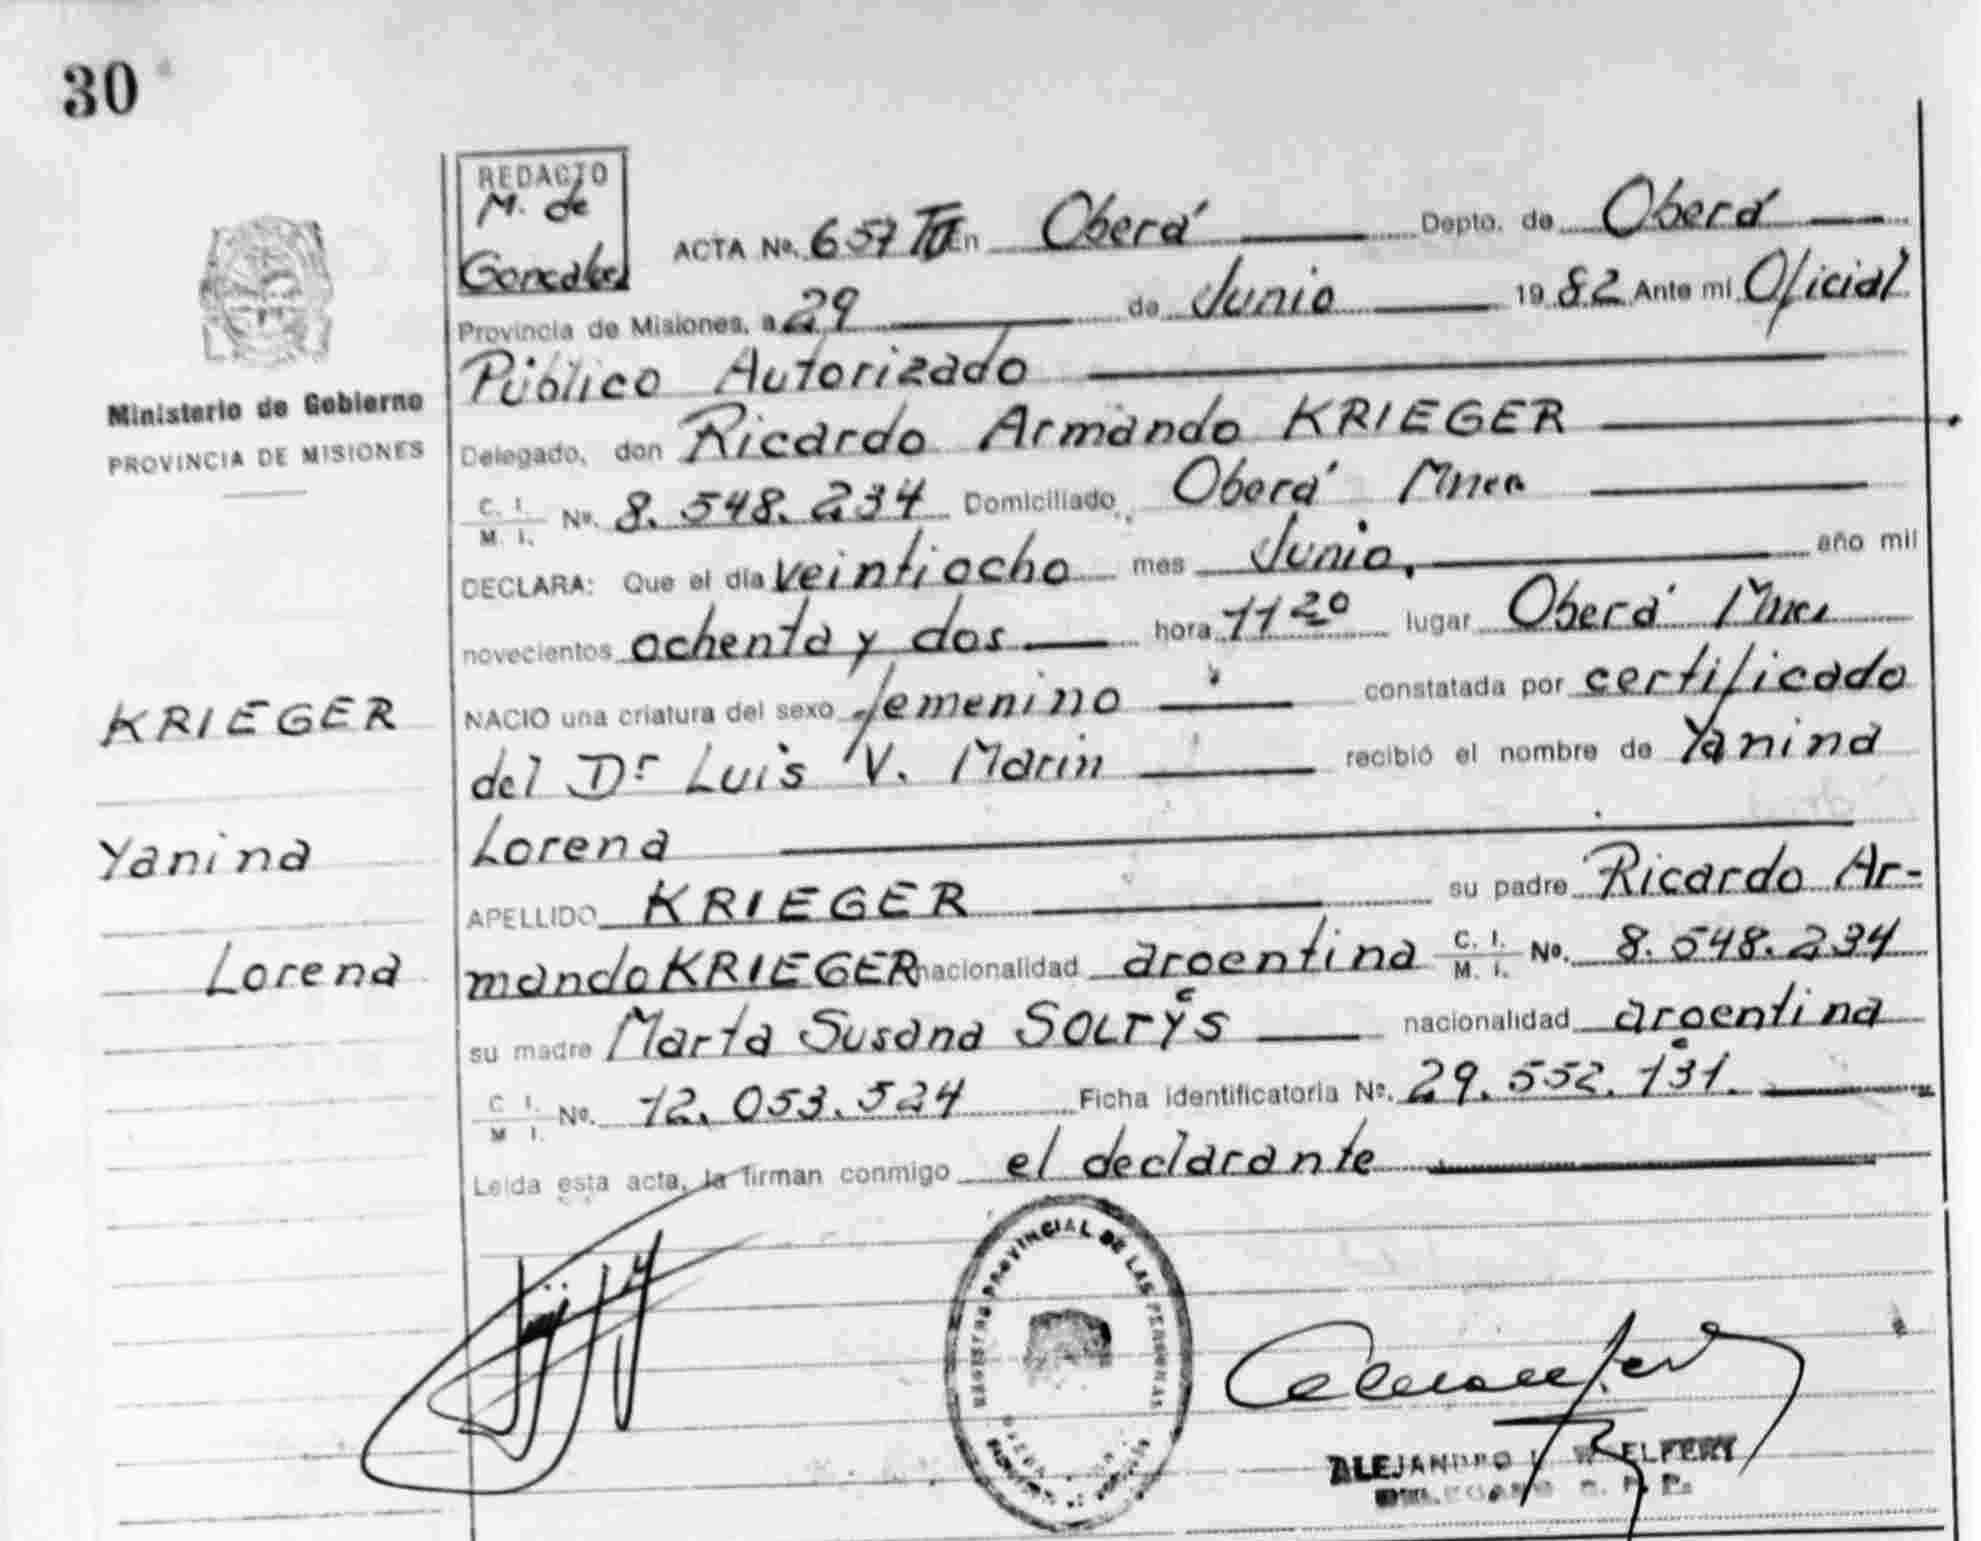 30
REDACTO
M. de
Gonzalez
ACTA Nº. 657 TII En Oberá Depto. de Oberá
Provincia de Misiones, a 29 de Junio 1982 Ante mi Oficial
Público Autorizado
Delegado, don Ricardo Armando KRIEGER
C. I. M. I. Nº. 8.548.234 Domiciliado, Oberá Mnes
DECLARA: Que el día veintiocho mes Junio, año mil
novecientos ochenta y dos hora 11 20 lugar Oberá Mnes
NACIO una criatura del sexo femenino constatada por certificado
del Dr Luis V. Marin recibió el nombre de Yanina
Lorena
APELLIDO KRIEGER su padre Ricardo Ar-
mando KRIEGER nacionalidad argentina C. I. M. I. Nº. 8.548.234
su madre Marta Susana SOLTYS nacionalidad argentina
C. I. M. I. Nº. 12.053.524 Ficha identificatoria Nº. 29.552.131.
Leida esta acta, la firman conmigo el declarante
Ministerio de Gobierno
PROVINCIA DE MISIONES
KRIEGER
Yanina
Lorena
REGISTRO PROVINCIAL DE LAS PERSONAS
ALEJANDRO
DELEGADO R. P. P.